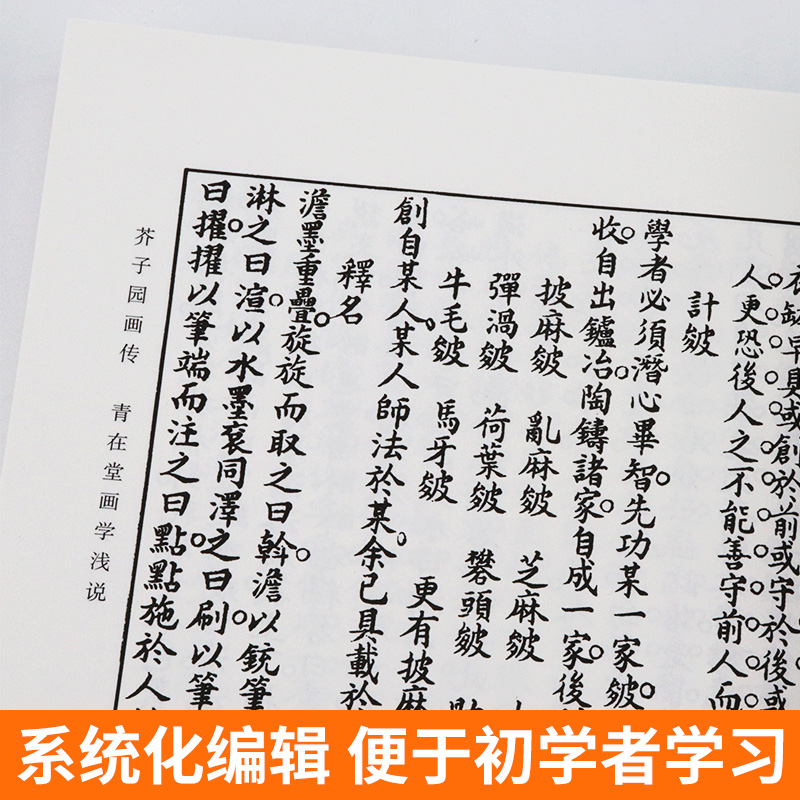 具或創於前或守於後或
人更恐後人之不能善守前人而
計皴
學者必須潛心畢智。先功某一家皴。
收。自出鑪冶。陶鑄諸家。自成一家。後
披麻皴 亂麻皴 芝麻皴
彈渦皴 荷葉皴 礬頭皴
牛毛皴 馬牙皴 更有披麻
創自某人。某人師法於某。余已具載於
釋名
澹墨重疊。旋旋而取之曰斡。澹以銳筆
淋之曰渲。以水墨袞同澤之曰刷。以筆
曰擢。擢以筆端而注之曰點。點施於人
芥子园画传 青在堂画学浅说
系统化编辑 便于初学者学习